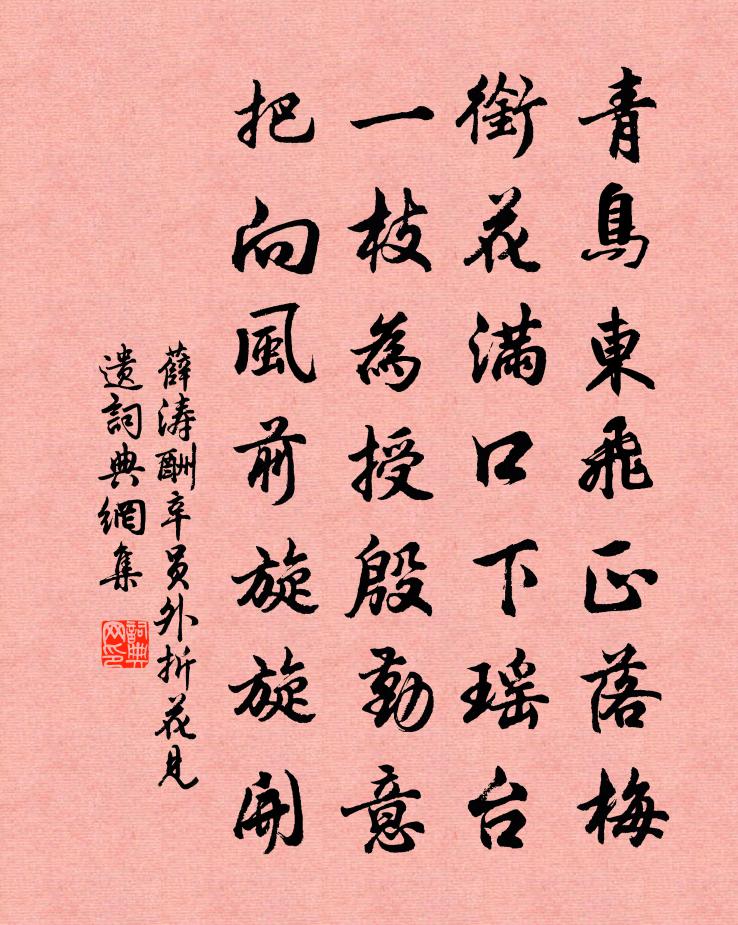 青鳥東飛正落梅
銜花滿口下瑶台
一枝為授殷勤意
把向風前旋旋開
薛涛酬辛員外折花見
遺詞典網集
詞典網印